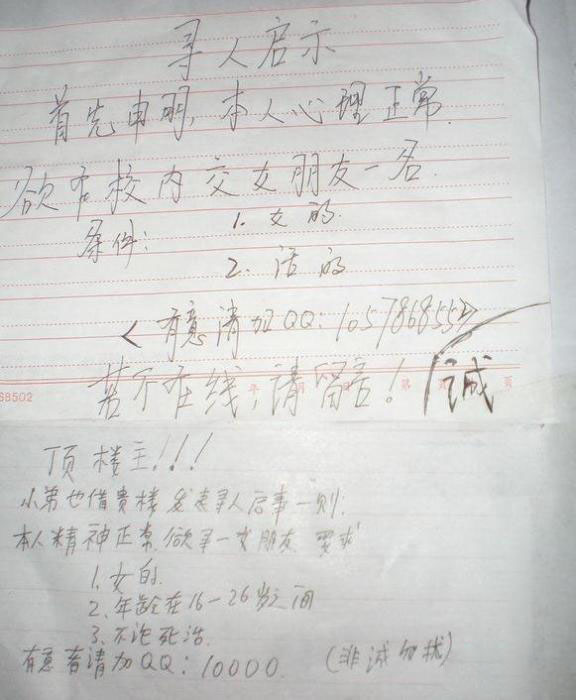 寻人启示
首先申明,本人心理正常.
欲在校内交女朋友一名.
条件: 1. 女的.
2. 活的
<有意请加QQ:1057868552>
若不在线,请留言! 诚
68502 年 第 页
顶楼主!!!
小弟也借贵楼发表寻人启事一则:
本人精神正常,欲寻一女朋友,要求
1. 女的.
2. 年龄在16-26岁之间
3. 不论死活.
有意者请加QQ:10000. (非诚勿扰)